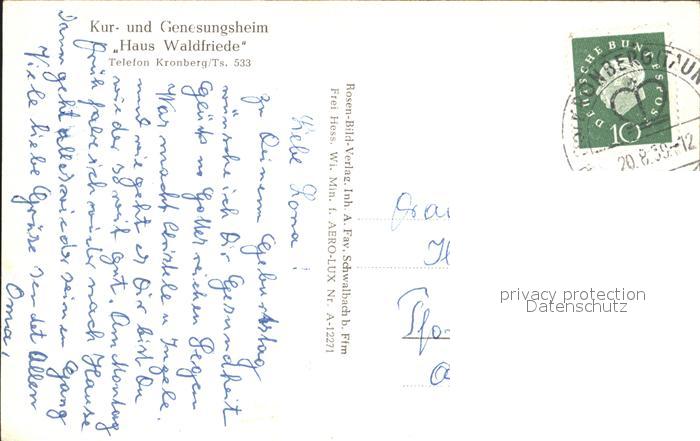 Kur- und Genesungsheim
„Haus Waldfriede"
Telefon Kronberg/Ts. 533
Liebe Lona!
zu Deinem Geburtstag
wünsche ich Dir Gesundheit
Glück u Gottes reichen Segen
Was macht Christele u Ingele.
und wie geht es Dir bist Du
wieder so weit gut. Am Montag
früh fahre ich wieder nach Hause
dann geht alles wieder seinen Gang
Viele liebe Grüße sendet Allen
Oma,
Rosen-Bild-Verlag, Inh. A. Fay, Schwalbach b. Ffm
Frei Hess. Wi. Min. f. AERO-LUX Nr. A-12271
DEUTSCHE BUNDESPOST
10
KRONBERG (TAUN
20.8.59.-12
Frau
H
Pfo
privacy protection
Datenschutz